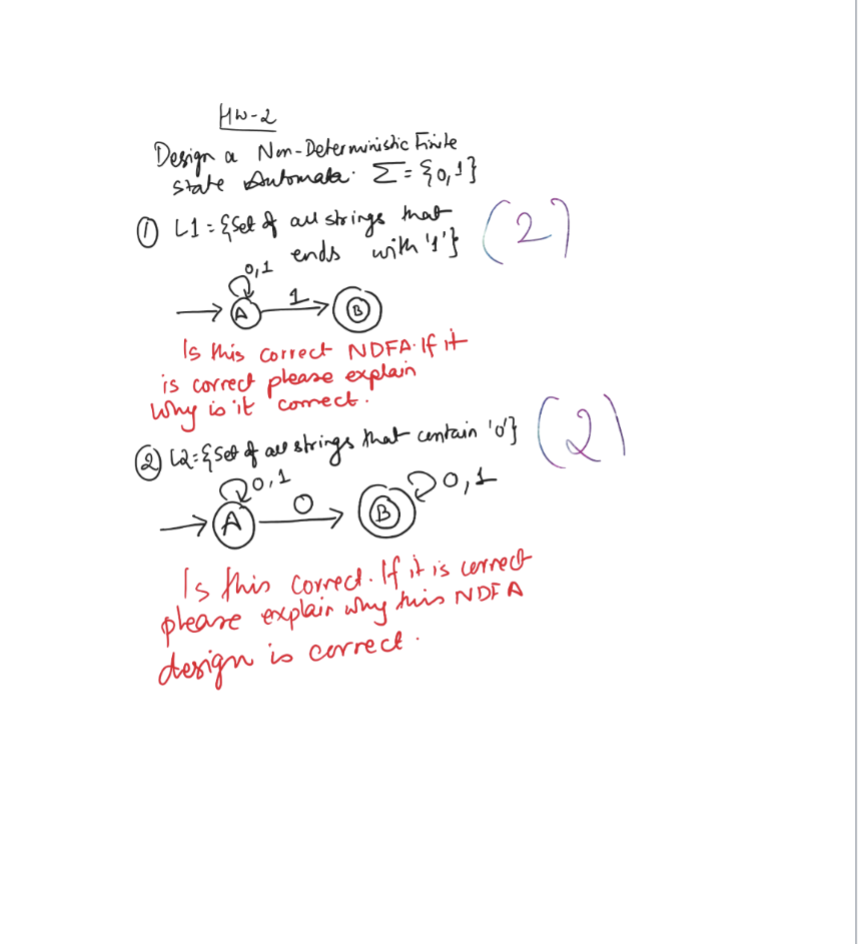 HW-2
Design a Non-Deterministic Finite
state Automata. Σ = {0,1}
① L1 = {Set of all strings that
ends with '1'}
(2)
0,1
A
1
B
Is this correct NDFA. If it
is correct please explain
why is it correct.
② L2 = {Set of all strings that contain '0'}
(2)
0,1
A
0
B
0,1
Is this correct. If it is correct
please explain why this NDFA
design is correct.